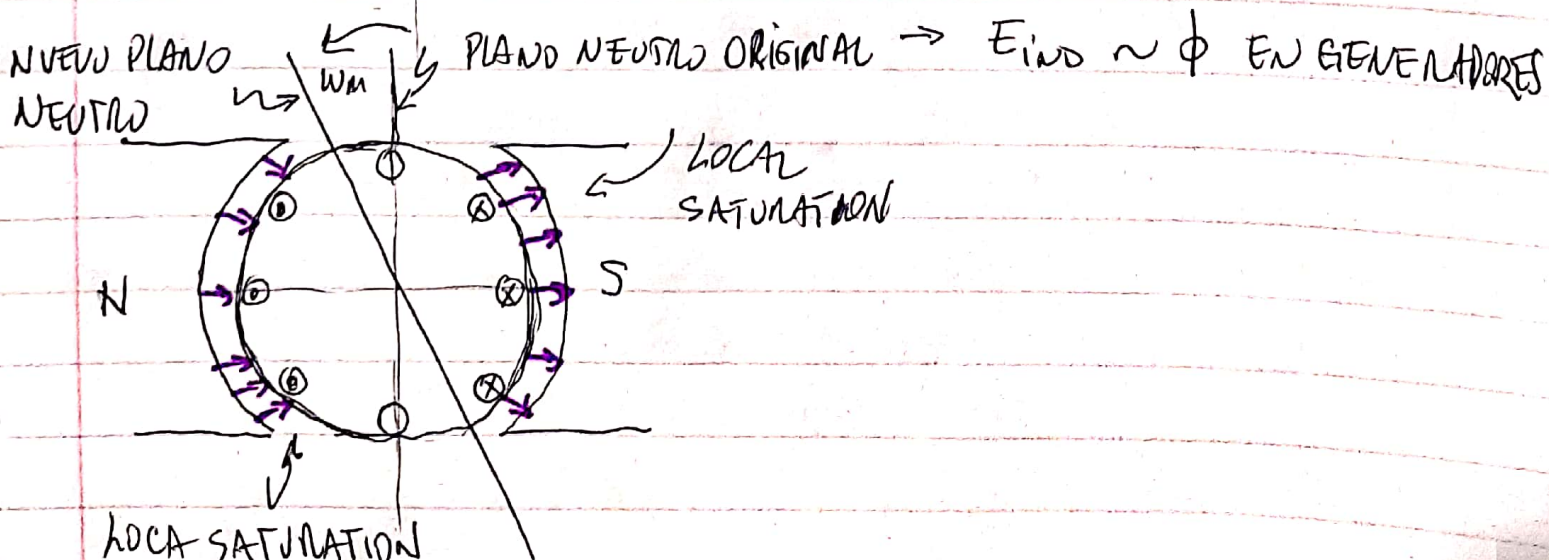 NUEVO PLANO
NEUTRO
Wm
PLANO NEUTRO ORIGINAL → EIND ~ ϕ EN GENERADORES
LOCAL
SATURATION
N
S
LOCA SATURATION